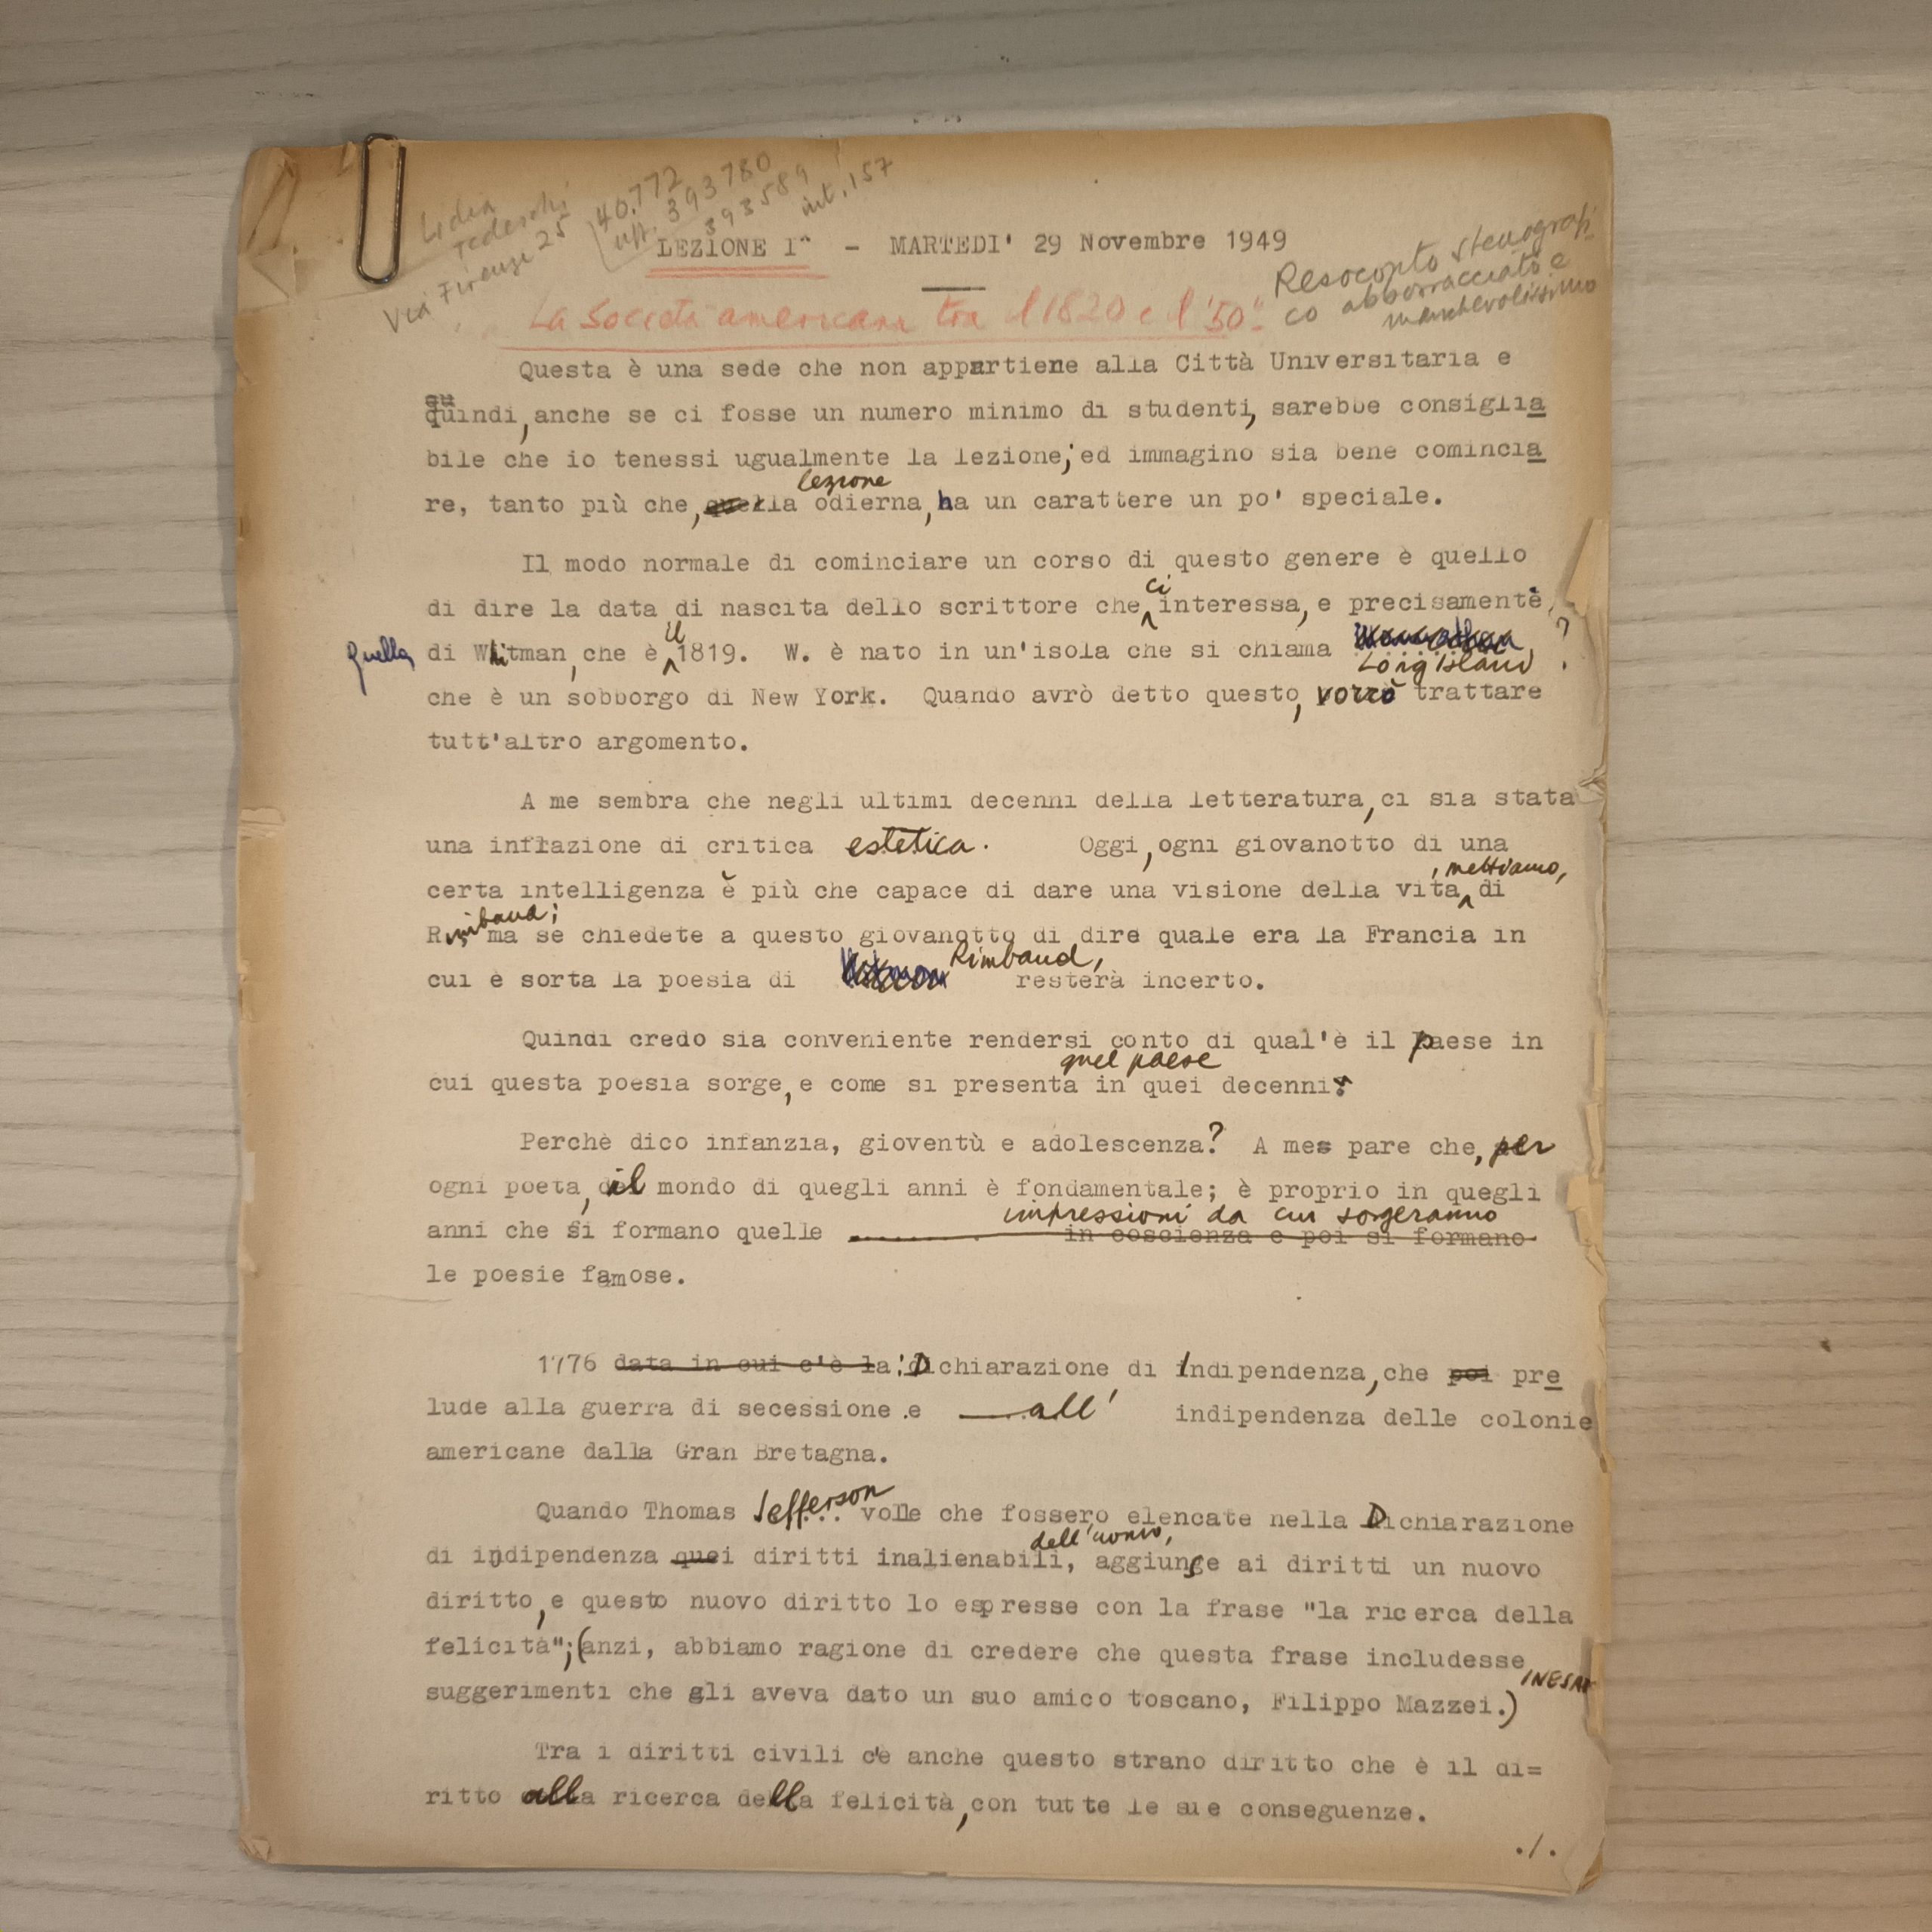 Lidia
Tedeschi
Via Firenze 25
40.772
uff. 393780
393589
int. 157
LEZIONE Iª - MARTEDI' 29 Novembre 1949
Resoconto stenografi-
co abborracciato e
manchevolissimo
La Società americana tra il 1820 e il '50"
Questa è una sede che non appartiene alla Città Universitaria e
quindi, anche se ci fosse un numero minimo di studenti, sarebbe consiglia
bile che io tenessi ugualmente la lezione; ed immagino sia bene comincia
lezione
re, tanto più che, quella odierna, ha un carattere un po' speciale.
Il modo normale di cominciare un corso di questo genere è quello
ci
di dire la data di nascita dello scrittore che interessa, e precisamente,
il
Quella di Whitman, che è 1819. W. è nato in un'isola che si chiama ?
Long Island
che è un sobborgo di New York. Quando avrò detto questo, vorrò trattare
tutt'altro argomento.
A me sembra che negli ultimi decenni della letteratura, ci sia stata
una inflazione di critica estetica. Oggi, ogni giovanotto di una
, mettiamo,
certa intelligenza è più che capace di dare una visione della vita di
Rimbaud; ma se chiedete a questo giovanotto di dire quale era la Francia in
Rimbaud,
cui è sorta la poesia di resterà incerto.
Quindi credo sia conveniente rendersi conto di qual'è il paese in
quel paese
cui questa poesia sorge, e come si presenta in quei decenni.
Perchè dico infanzia, gioventù e adolescenza? A me pare che, per
ogni poeta, il mondo di quegli anni è fondamentale; è proprio in quegli
impressioni da cui sorgeranno
anni che si formano quelle in coscienza e poi si formano
le poesie famose.
1776 data in cui c'è la: Dichiarazione di Indipendenza, che poi pre
lude alla guerra di secessione e all' indipendenza delle colonie
americane dalla Gran Bretagna.
Quando Thomas Jefferson volle che fossero elencate nella Dichiarazione
dell'uomo,
di indipendenza quei diritti inalienabili, aggiunse ai diritti un nuovo
diritto, e questo nuovo diritto lo espresse con la frase "la ricerca della
felicità"; (anzi, abbiamo ragione di credere che questa frase includesse
suggerimenti che gli aveva dato un suo amico toscano, Filippo Mazzei.)
Tra i diritti civili c'è anche questo strano diritto che è il di=
ritto alla ricerca della felicità, con tutte le sue conseguenze.
./.